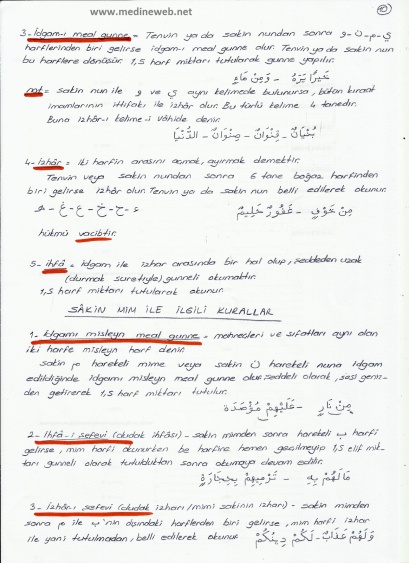 www.medineweb.net
3-İdgam-ı meal gunne = Tenvin ya da sakin nundan sonra و - ن - م - ي
harflerinden biri gelirse idgam-ı meal gunne olur. Tenvin ya da sakin nun
bu harflere dönüşür. 1,5 harf miktarı tutularak gunne yapılır.
خَيْرًا يَرَهُ - وَمِنْ مَاءٍ
not = sakin nun ile و ve ي aynı kelimede bulunursa, bütün kıraat
imamlarının ittifakı ile izhar olur. Bu türlü kelime 4 tanedir.
Buna izhar-ı kelime-i vâhide denir.
بُنْيَانٌ - قِنْوَانٌ - صِنْوَانٌ - الدُّنْيَا
4-İzhâr = iki harfin arasını açmak, ayırmak demektir.
Tenvin veya sakin nundan sonra 6 tane boğaz harfinden
biri gelirse izhâr olur. Tenvin ya da sakin nun belli edilerek okunur.
مِنْ خَوْفٍ - غَفُورٌ حَلِيمٌ ء - ح - خ - ع - غ - ه
hükmü vacibtir.
5- ihfâ = idgam ile izhar arasında bir hal olup, şeddeden uzak
(durmak suretiyle) gunneli okumaktır.
1,5 harf miktarı tutularak okunur.
SÂKİN MİM İLE İLGİLİ KURALLAR
1-İdgamı misleyn meal gunne = mahrecleri ve sıfatları aynı olan
iki harfe misleyn harf denir.
sakin م harekeli mime veya sakin ن harekeli nuna idgam
edildiğinde idgamı misleyn meal gunne olur. Şeddeli olarak, sesi geniz-
den getirerek 1,5 harf miktarı tutulur.
مِنْ نَارٍ - عَلَيْهِمْ مُؤْصَدَةٌ
2-İhfâ-i şefevi (dudak ihfâsı) - sakin mimden sonra harekeli ب harfi
gelirse, mim harfi okunurken be harfine hemen geçilmeyip 1,5 elif mik-
tarı gunneli olarak tutulduktan sonra okumaya devam edilir.
مَا لَهُمْ بِهِ - تَرْمِيهِمْ بِحِجَارَةٍ
3-İzhâr-ı şefevi (dudak izharı/mimi sakinin izharı) - sakin mimden
sonra م ile ب'nin dışındaki harflerden biri gelirse, mim harfi izhar
ile yani tutulmadan, belli edilerek okunur. وَلَهُمْ عَذَابٌ - لَكُمْ دِينُكُمْ